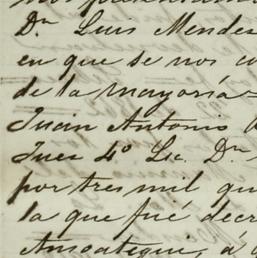 Dn Luis Mendes
en que se nos co
de la mayoría
Juan Antonio
Juez 4o Lic. Dn
por tres mil qu
la que fué decr
Ansoategui, á